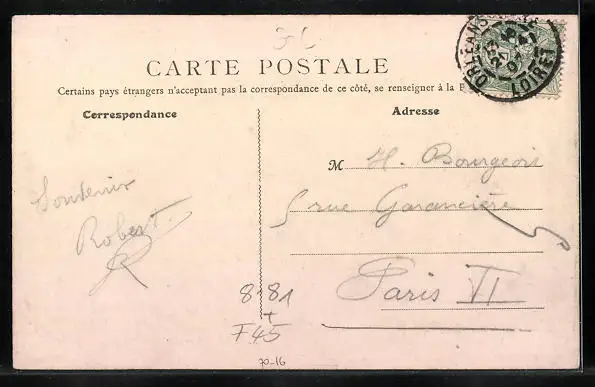 CARTE POSTALE
Certains pays étrangers n'acceptant pas la correspondance de ce côté, se renseigner à la
Correspondance
Adresse
ORLEANS
LOIRET
M H. Bourgeois
5 rue Garancière
Paris VI
Souvenir
Robert
8-81
+
F45
70-16